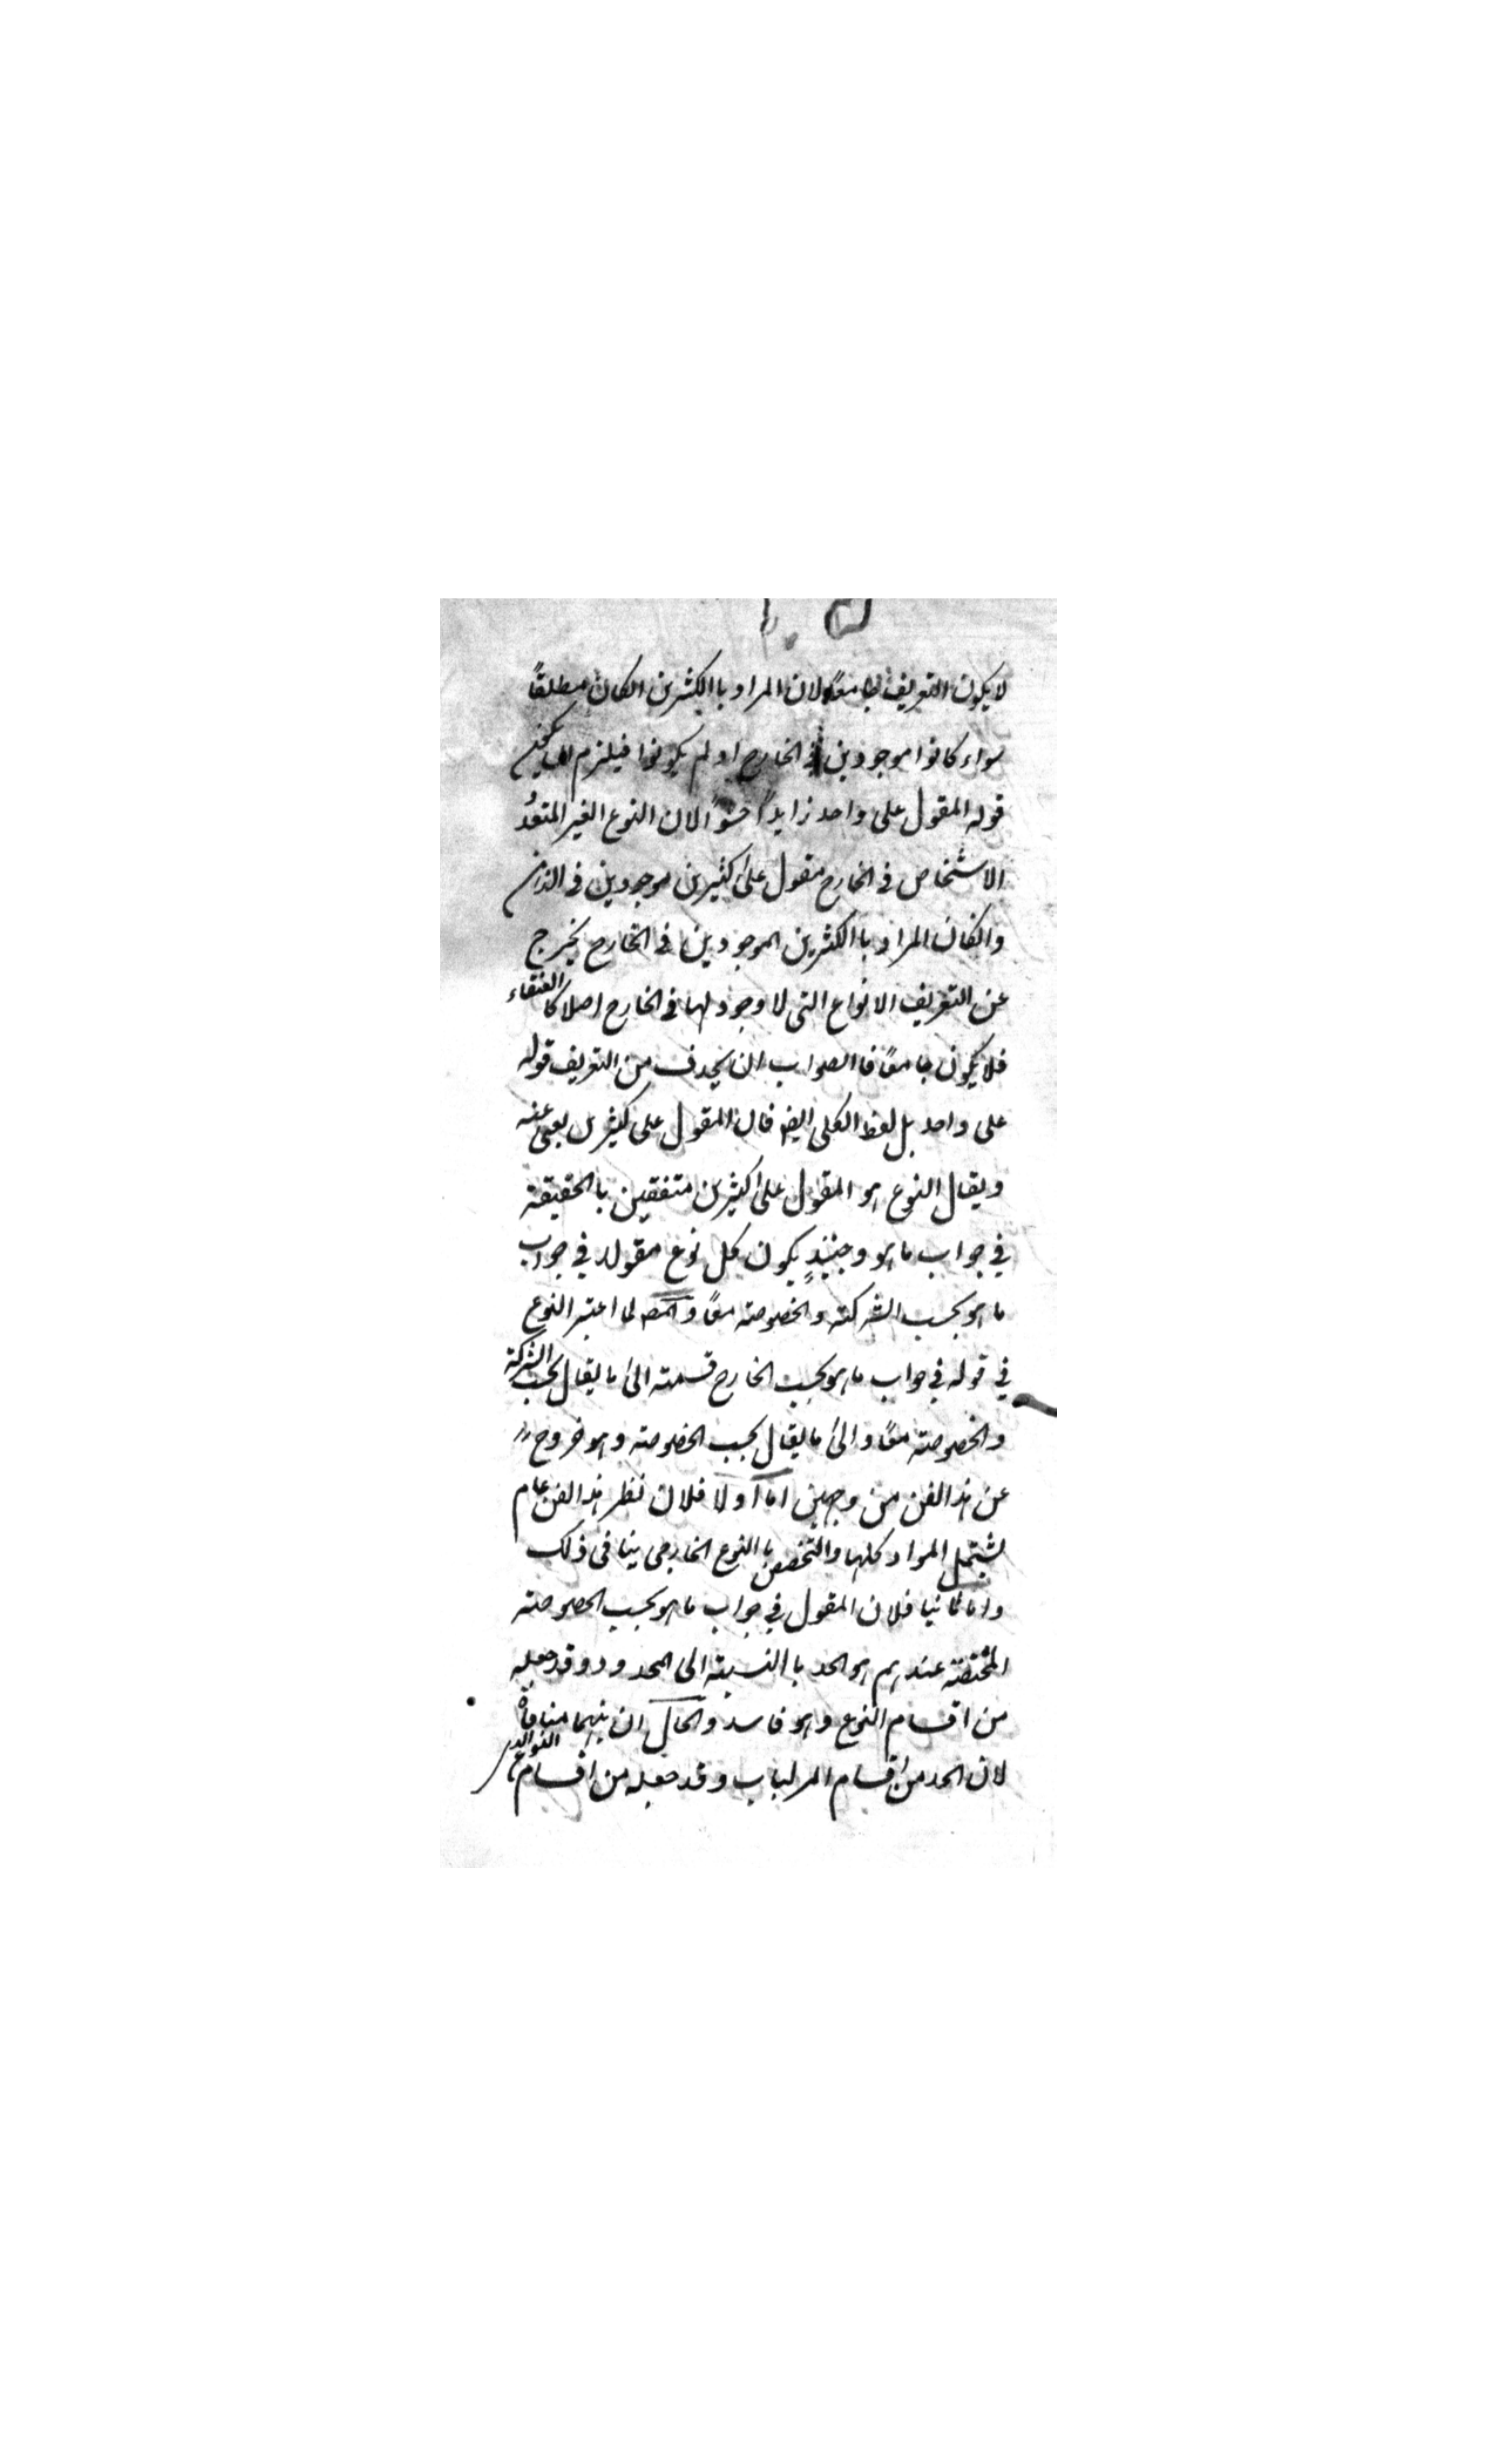 لا يكون التعريف جامعًا لان المراد باالكثرين انكان مطلقًا
سواء كانوا موجودين في الخارج او لم يكونوا فيلزم ان يكون
قوله المقول على واحد زايدًا حشوًا لان النوع الغير المتعدد
الاشخاص في الخارج مقول على كثيرين موجودين في الذهن
وانكان المراد باالكثرين الموجودين في الخارج يخرج
عن التعريف الانواع التي لا وجود لها في الخارج اصلا كاالعنقاء
فلا يكون جامعًا فاالصواب ان يحذف من التعريف قوله
على واحد بل لفظ الكلى ايضه فان المقول على كثيرين يغنى عنه
ويقال النوع هو المقول على كثيرين متفقين باالحقيقة
في جواب ما هو وحينئذٍ يكون كل نوع مقولا في جواب
ما هو بحسب الشركة والخصوصة معًا والمصـ لما اعتبر النوع
في قوله في جواب ما هو بحسب الخارج قسمته الى ما يقال بحسب الشركة
والخصوصة معًا والى ما يقال بحسب الخصوصة وهو خروج
عن هذالفن من وجهين اما اولا فلان نظر هذالفن عام
يشتمل المواد كلها والتخصص باالنوع الخارجى ينافى ذلك
واما ثانيا فلان المقول في جواب ما هو بحسب الخصوصة
المختصة عندهم هو الحد باالنسبة الى المحدود وقد جعله
من اقسام النوع وهو فاسد والحال ان بينهما منافاة
لان الحد من اقسام المركبات وقد جعله من اقسام